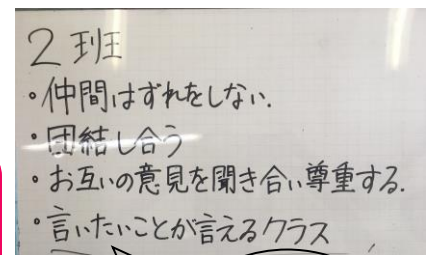 2班
・仲間はずれをしない.
・団結し合う
・お互いの意見を聞き合い尊重する.
・言いたいことが言えるクラス